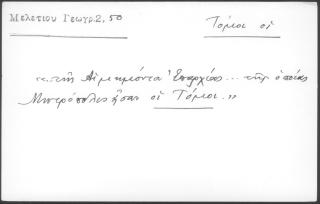 Μελετίου Γεωγρ. 2, 50
Τόμοι οἱ
«..τῆς Αἱμημόντα Ἐπαρχίας... τῆς ὁποίας
Μητρόπολις ἦσαν οἱ Τόμοι.»